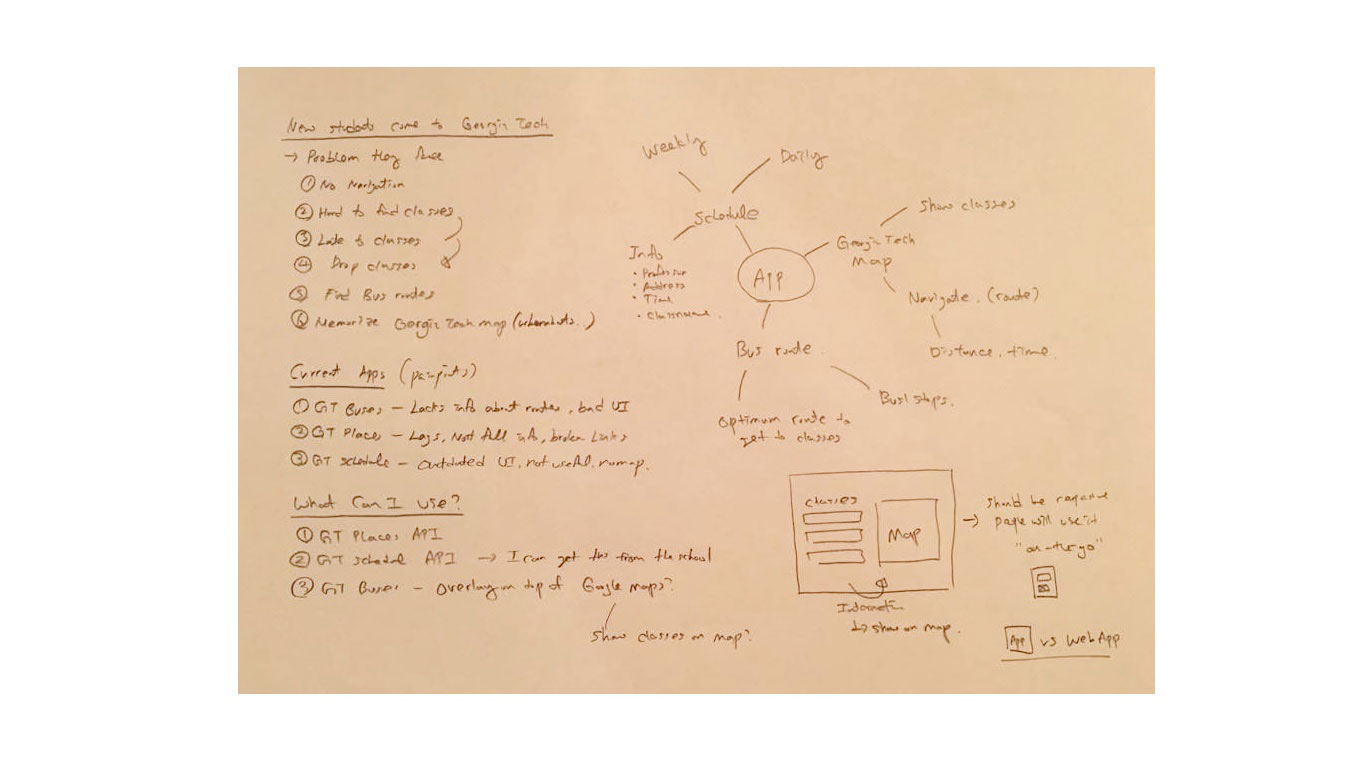 New students come to Georgia Tech
→ Problem they face
① No Navigation
② Hard to find classes
③ Late to classes
④ Drop classes
⑤ Find Bus routes
⑥ Memorize Georgia Tech map (whereabouts..)
Current Apps (painpoints)
① GT Buses - Lacks info about routes, bad UI
② GT Places - Lags, Not full info, broken Links
③ GT schedule - outdated UI, not useful, no map.
What Can I use?
① GT Places API
② GT schedule API → I can get this from the school
③ GT Buses - overlay on top of Google maps?
show classes on map?
Weekly
Daily
Schedule
Info
• Professor
• Address
• Time
• Classname
App
Georgia Tech
Map
Show classes
Navigate. (route)
Distance. time.
Bus route
Optimum route to
get to classes
Bus stops.
classes
Map
Interaction
↳ show on map.
→ should be responsive
people will use it
"on-the-go"
App vs Web App